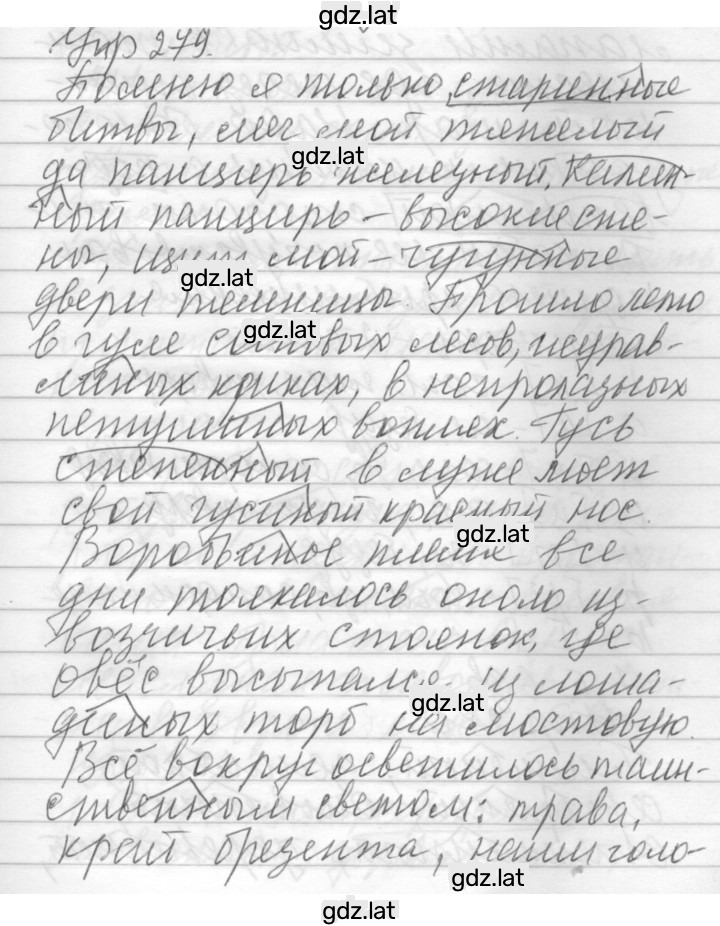 gdz.lat
Упр 279.
Помню я только старинные
битвы, меч мой тяжелый
gdz.lat
да панцирь железный. Камен-
ный панцирь – высокие сте-
ны, щит мой – чугунные
gdz.lat
двери темницы. Прошло лето
gdz.lat
в гуле сосновых лесов, журав-
линых криках, в непролазных
петушиных воплях. Гусь
степенный в луже моет
свой гусиный красный нос.
gdz.lat
Воробьиное племя все
дни толкалось около из-
возчичьих стоянок, где
овёс высыпался из лоша-
gdz.lat
диных торб на мостовую.
Всё вокруг осветилось таин-
ственным светом: трава,
край брезента, наши голо-
gdz.lat
gdz.lat